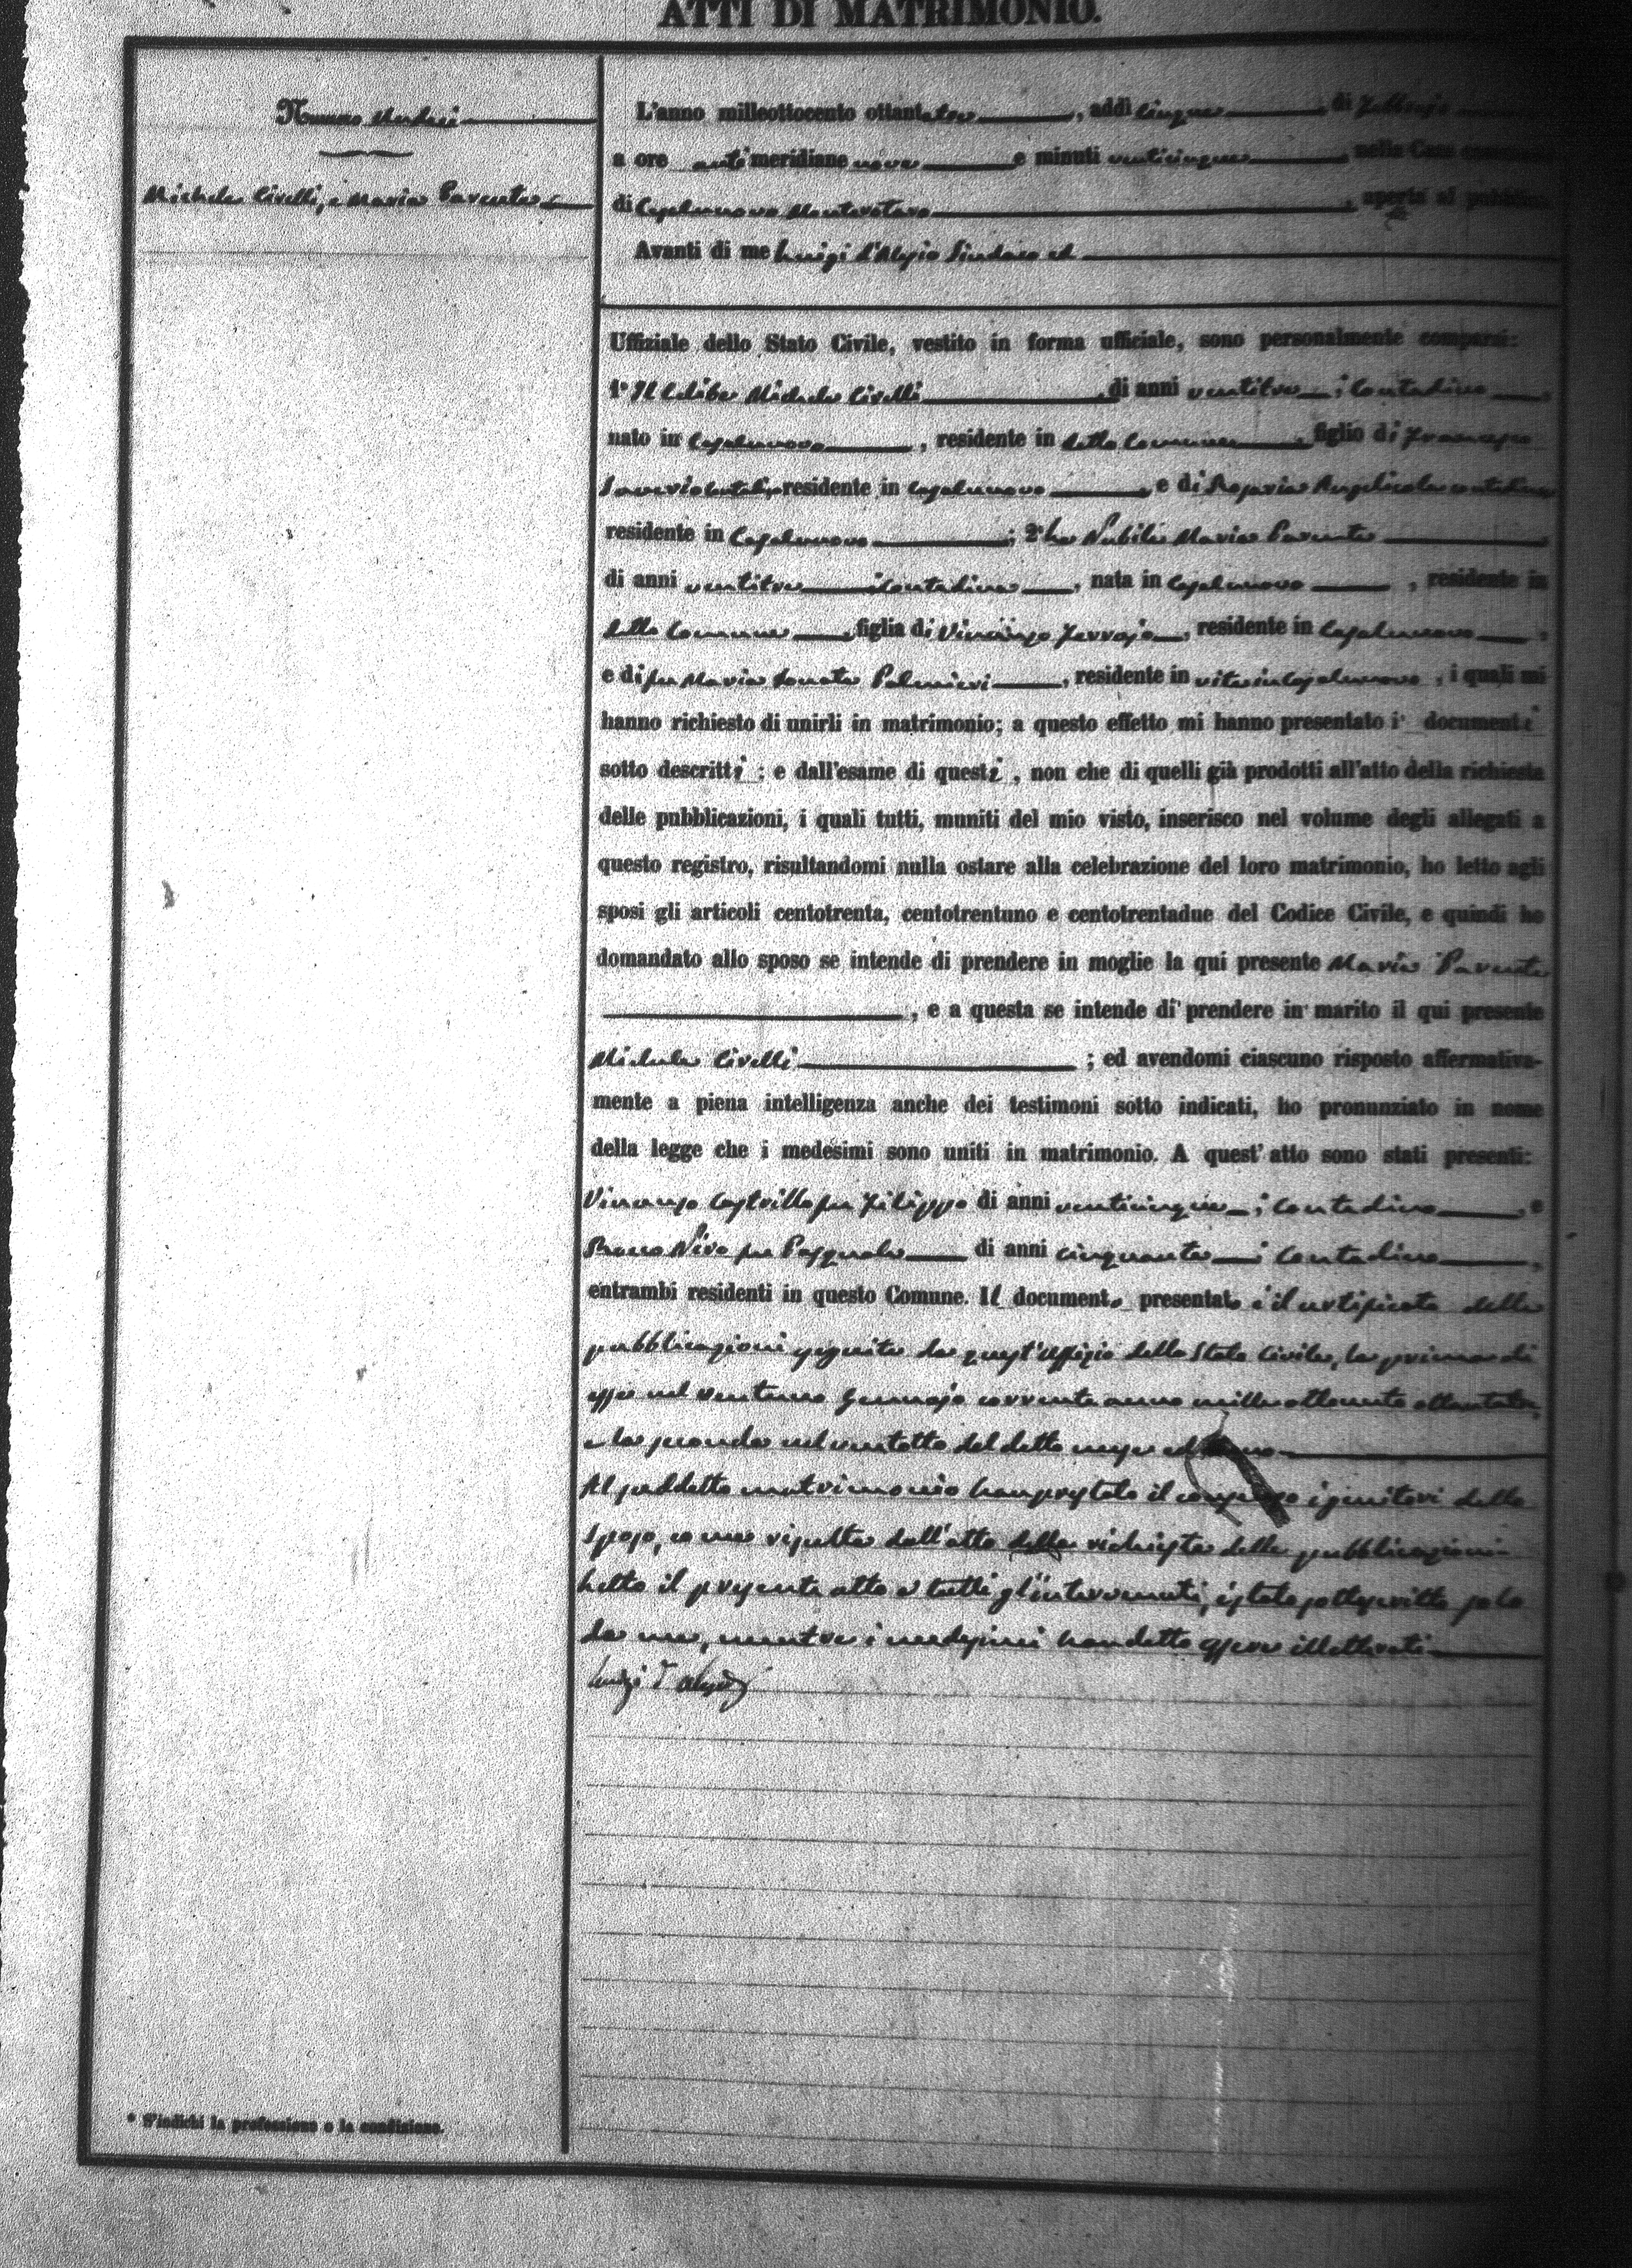 ATTI DI MATRIMONIO.
Numero undici
Michele Civelli, e Maria Parente
L'anno milleottocento ottantatre, addì cinque di Febbrajo
a ore anti meridiane nove e minuti venticinque nella Casa
di Casalnuovo Monterotaro, aperta al pubblico.
Avanti di me Luigi d'Alesio Sindaco ed
Uffiziale dello Stato Civile, vestito in forma ufficiale, sono personalmente comparsi:
1° Il Celibe Michele Civelli, di anni ventitre, Contadino,
nato in Casalnuovo, residente in detto Comune, figlio di Francesco
Saverio residente in Casalnuovo, e di Rosaria contadina
residente in Casalnuovo; 2° La Nubile Maria Parente
di anni ventitre Contadina, nata in Casalnuovo, residente in
detto Comune, figlia di Vincenzo, residente in Casalnuovo,
e di fu Maria Donata Palmieri, residente in vita in Casalnuovo, i quali mi
hanno richiesto di unirli in matrimonio; a questo effetto mi hanno presentato i documenti
sotto descritti; e dall'esame di questi, non che di quelli già prodotti all'atto della richiesta
delle pubblicazioni, i quali tutti, muniti del mio visto, inserisco nel volume degli allegati a
questo registro, risultandomi nulla ostare alla celebrazione del loro matrimonio, ho letto agli
sposi gli articoli centotrenta, centotrentuno e centotrentadue del Codice Civile, e quindi ho
domandato allo sposo se intende di prendere in moglie la qui presente Maria Parente
, e a questa se intende di prendere in marito il qui presente
Michele Civelli; ed avendomi ciascuno risposto affermativa-
mente a piena intelligenza anche dei testimoni sotto indicati, ho pronunziato in nome
della legge che i medesimi sono uniti in matrimonio. A quest' atto sono stati presenti:
Vincenzo Castrillo fu Filippo di anni venticinque, Contadino, e
Rocco fu Pasquale di anni cinquanta, Contadino,
entrambi residenti in questo Comune. Il documento presentato è il certificato delle
pubblicazioni eseguite da quest'Uffizio dello Stato Civile, la prima di
esse nel ventuno Gennajo corrente anno mille ottocento ottantatre,
e la seconda nel ventotto del detto mese ed anno
Al suddetto matrimonio han prestato il consenso i genitori dello
Sposo, come risulta dall'atto della richiesta delle pubblicazioni
Letto il presente atto a tutti gl'intervenuti, è stato sottoscritto solo
da me, mentre i medesimi han detto essere illetterati
Luigi d'Alesio
* S'indichi la professione o la condizione.